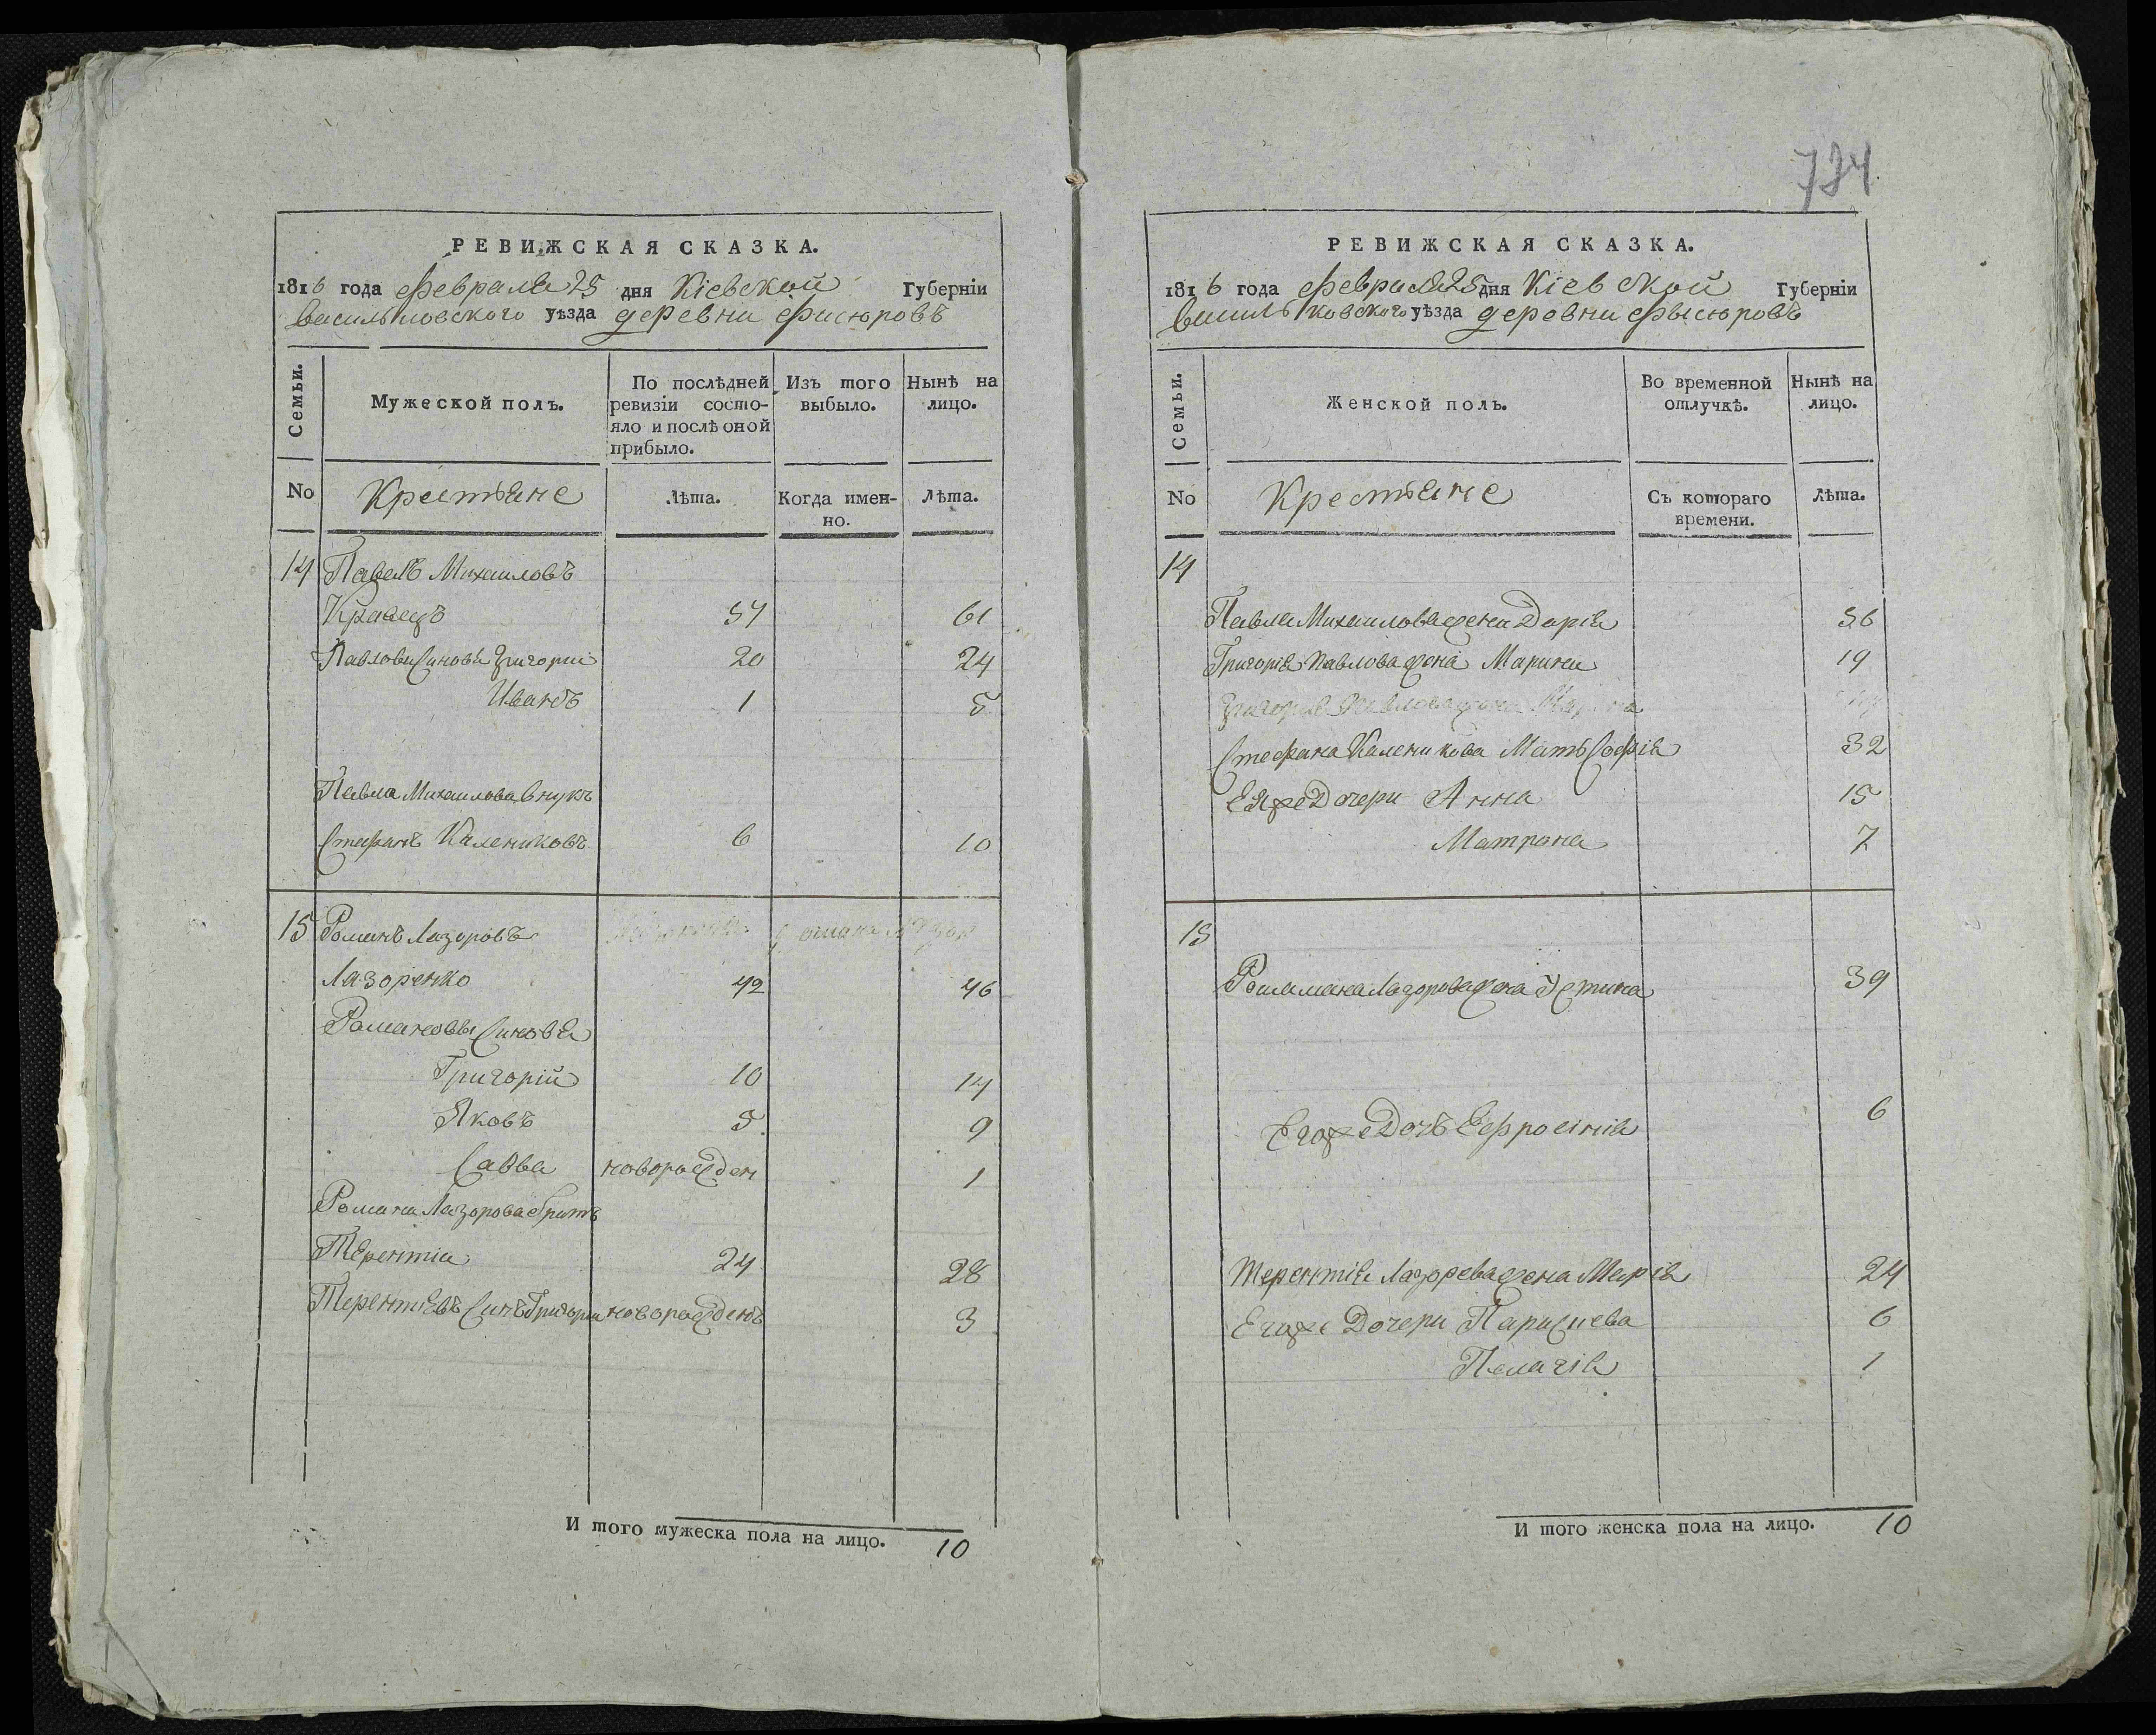 734
РЕВИЖСКАЯ СКАЗКА.
1816 года февраля 25 дня Кіевской Губерніи
васильковского уѣзда деревни Фисюровъ
Семьи.
Мужеской полъ.
По послѣдней ревизіи состо-
яло и послѣ оной
прибыло.
Изъ того выбыло.
Нынѣ на лицо.
No Крестьяне лѣта. Когда имен-
но. лѣта.
14 Павелъ Михаиловъ
Кравецъ 57 61
Павлови Синовья Григории 20 24
Иванъ 1 5
Павла Михаилова внукъ
Стефанъ Калениковъ 6 10
15 Романъ Лазоровъ
Лазоренко 42 46
Романовы Синовья
Григорій 10 14
Яковъ 5 9
Савва новорожден 1
Романа Лазорова братъ
Терентіи 24 28
Терентіевъ Синъ Григори новорожденъ 3
И того мужеска пола на лицо. 10
РЕВИЖСКАЯ СКАЗКА.
1816 года февраля 25 дня Кіевской Губерніи
васильковского уѣзда деревни Фысюровъ
Семьи.
Женской полъ.
Во временной отлучкѣ.
Нынѣ на лицо.
No Крестьяне Съ котораго
времени. лѣта.
14
Павла Михаилова жена Дарія 56
Григорія Павлова жена Марина 19
Григорія Павлова жена Марина
Стефана Каленикова Мать Софія 32
Ея же Дочери Анна 15
Матрона 7
15
Романа Лазорова жена Устина 39
Его же Дочь Ефросинія 6
Терентія Лазорева жена Марія 24
Его же Дочери Парискева 6
Пелагія 1
И того женска пола на лицо. 10